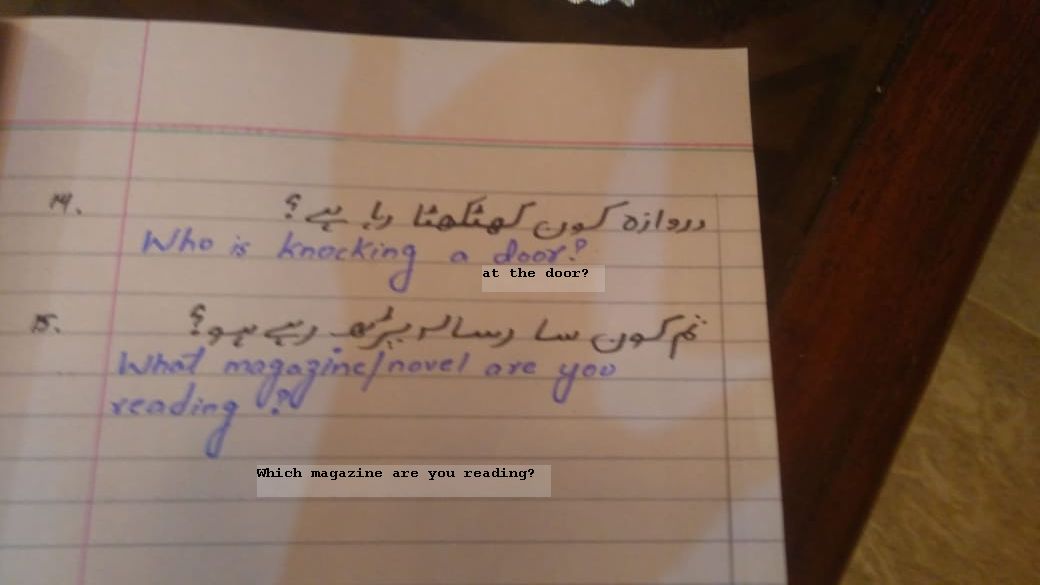 14. دروازہ کون کھٹکھٹا رہا ہے؟
Who is knocking a door?
at the door?
15. تم کون سا رسالہ پڑھ رہے ہو؟
What magazine/novel are you
reading ?
Which magazine are you reading?